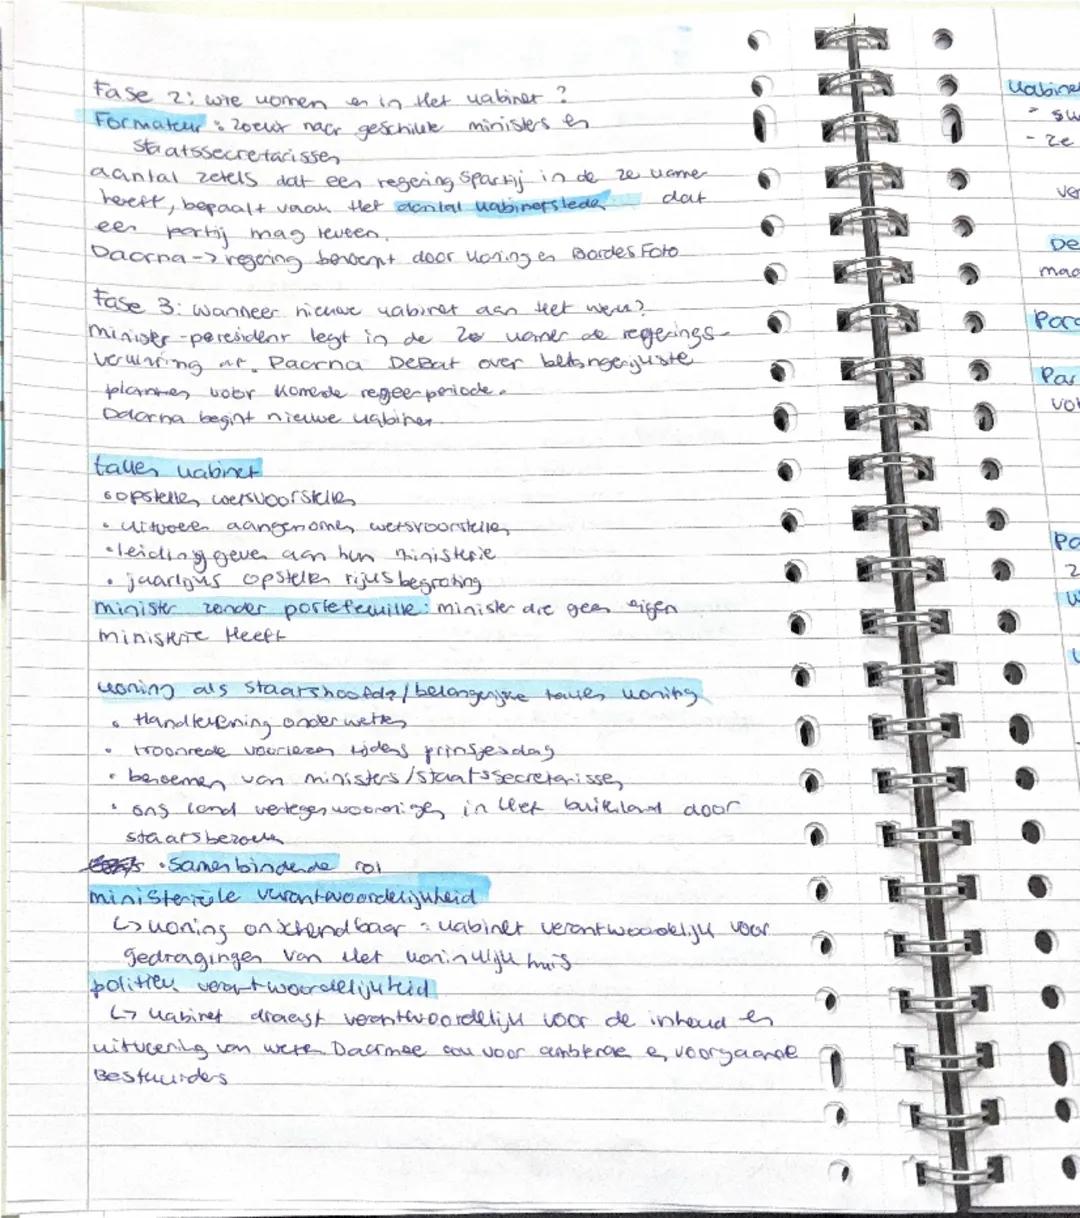 Fase 2: wie komen er in Het kabinet?
Formateur: zoekt naar geschikte ministers en
staatssecretarissen
aantal zetels dat een regeringspartij in de 2e kamer
heeft, bepaalt vaak Het aantal kabinetsleden dat
een partij mag leveren.
Daarna -> regering benoemt door koning en Bordes Foto
Fase 3: wanneer nieuwe kabinet aan Het werk?
minister-peresident legt in de 2e kamer de regerings-
verklaring af. Daarna DeBat over belangerijkste
plannen voor Komende regeerperiode.
Daarna begint nieuwe kabinet
taken kabinet
• opstellen wetsvoorstellen
• uitvoeren aangenomen wetsvoorstellen
• leiding geven aan hun ministerie
• jaarlijks opstellen rijksbegroting
minister zonder portefeuille: minister die geen eigen
ministerie Heeft
koning als staatshoofd / belangerijke taken koning
• Handtekening onder wetten
• troonrede voorlezen tijdens prinsjesdag
• benoemen van ministers/staatssecretarissen
• ons land vertegenwoordigen in Het buitenland door
staatsbezoeken
• Samenbindende rol
ministeriële verantwoordelijkheid
↳ koning onschendbaar: kabinet verantwoordelijk voor
gedragingen van Het koninklijk huis
politiek verantwoordelijkheid
↳ kabinet draagt verantwoordelijk voor de inhoud en
uitvoering van wetten Daarmee ook voor ambtenaren en voorgaande
Bestuurders
kabinet
- ze
De
Para
Par
Po
2